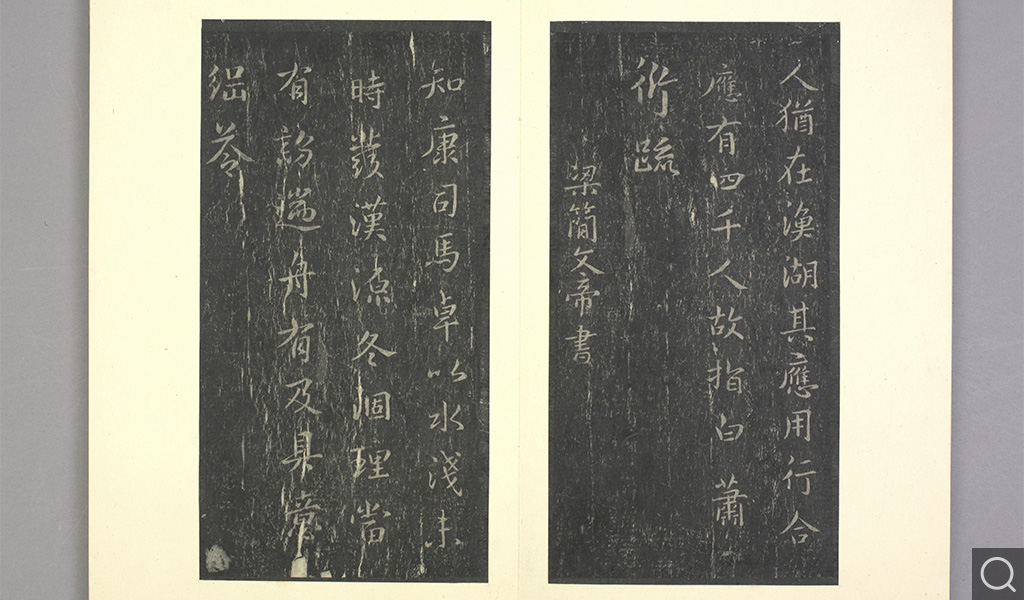 人猶在渙湖其應用行合
應有四千人故指白蕭
衍疏
梁簡文帝書
知康司馬卓以水淺未
時發漢流冬涸理當
有 遄舟有及具
綱荅